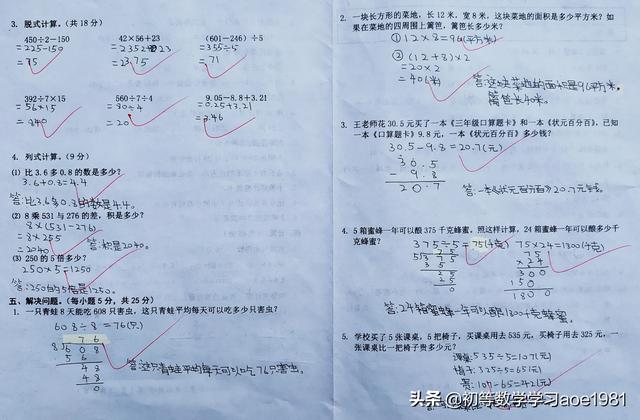 3. 脱式计算。(共 18 分)
450÷2-150
42×56+23
(601-246)÷5
=225-150
=2352+23
=355÷5
=75
=2375
=71
392÷7×15
560÷7÷4
9.05-8.8+3.21
=56×15
=80÷4
=0.25+3.21
=840
=20
=3.46
4. 列式计算。(9 分)
(1) 比 3.6 多 0.8 的数是多少?
3.6+0.8=4.4
答:比3.6多0.8的数是4.4。
(2) 8 乘 531 与 276 的差,积是多少?
8×(531-276)
=8×255
=2040
答:积是2040。
(3) 250 的 5 倍多少?
250×5=1250
答:250的5倍是1250。
五、解决问题。(每小题 5 分,共 25 分)
1. 一只青蛙 8 天能吃 608 只害虫,这只青蛙平均每天可以吃多少只害虫?
608÷8=76(只)
76
8 608
56
48
48
0
答:这只青蛙平均每天可以吃76只害虫。
2. 一块长方形的菜地,长 12 米,宽 8 米,这块菜地的面积是多少平方米?如
果在菜地的四周围上篱笆,篱笆长多少米?
①12×8=96(平方米)
②(12+8)×2
=20×2
=40(米)
答:这块菜地的面积是96平方米,
篱笆长40米。
3. 王老师花 30.5 元买了一本《三年级口算题卡》和一本《状元百分百》,已知
一本《口算题卡》9.8 元,一本《状元百分百》多少钱?
30.5-9.8=20.7(元)
30.5
- 9.8
20.7
答:一本《状元百分百》20.7元钱。
4. 5 箱蜜蜂一年可以酿 375 千克蜂蜜,照这样计算,24 箱蜜蜂一年可以酿多少千
克蜂蜜?
375÷5=75(千克)
75×24=1800(千克)
75
5 375
35
25
25
0
75
×24
300
150
1800
答:24箱蜜蜂一年可以酿1800千克蜂蜜。
5. 学校买了 5 张课桌,5 把椅子,买课桌用去 535 元,买椅子用去 325 元,一
张课桌比一把椅子贵多少元?
课桌:535÷5=107(元)
椅子:325÷5=65(元)
贵:107-65=42(元)
头条 @初等数学学习aoe1981